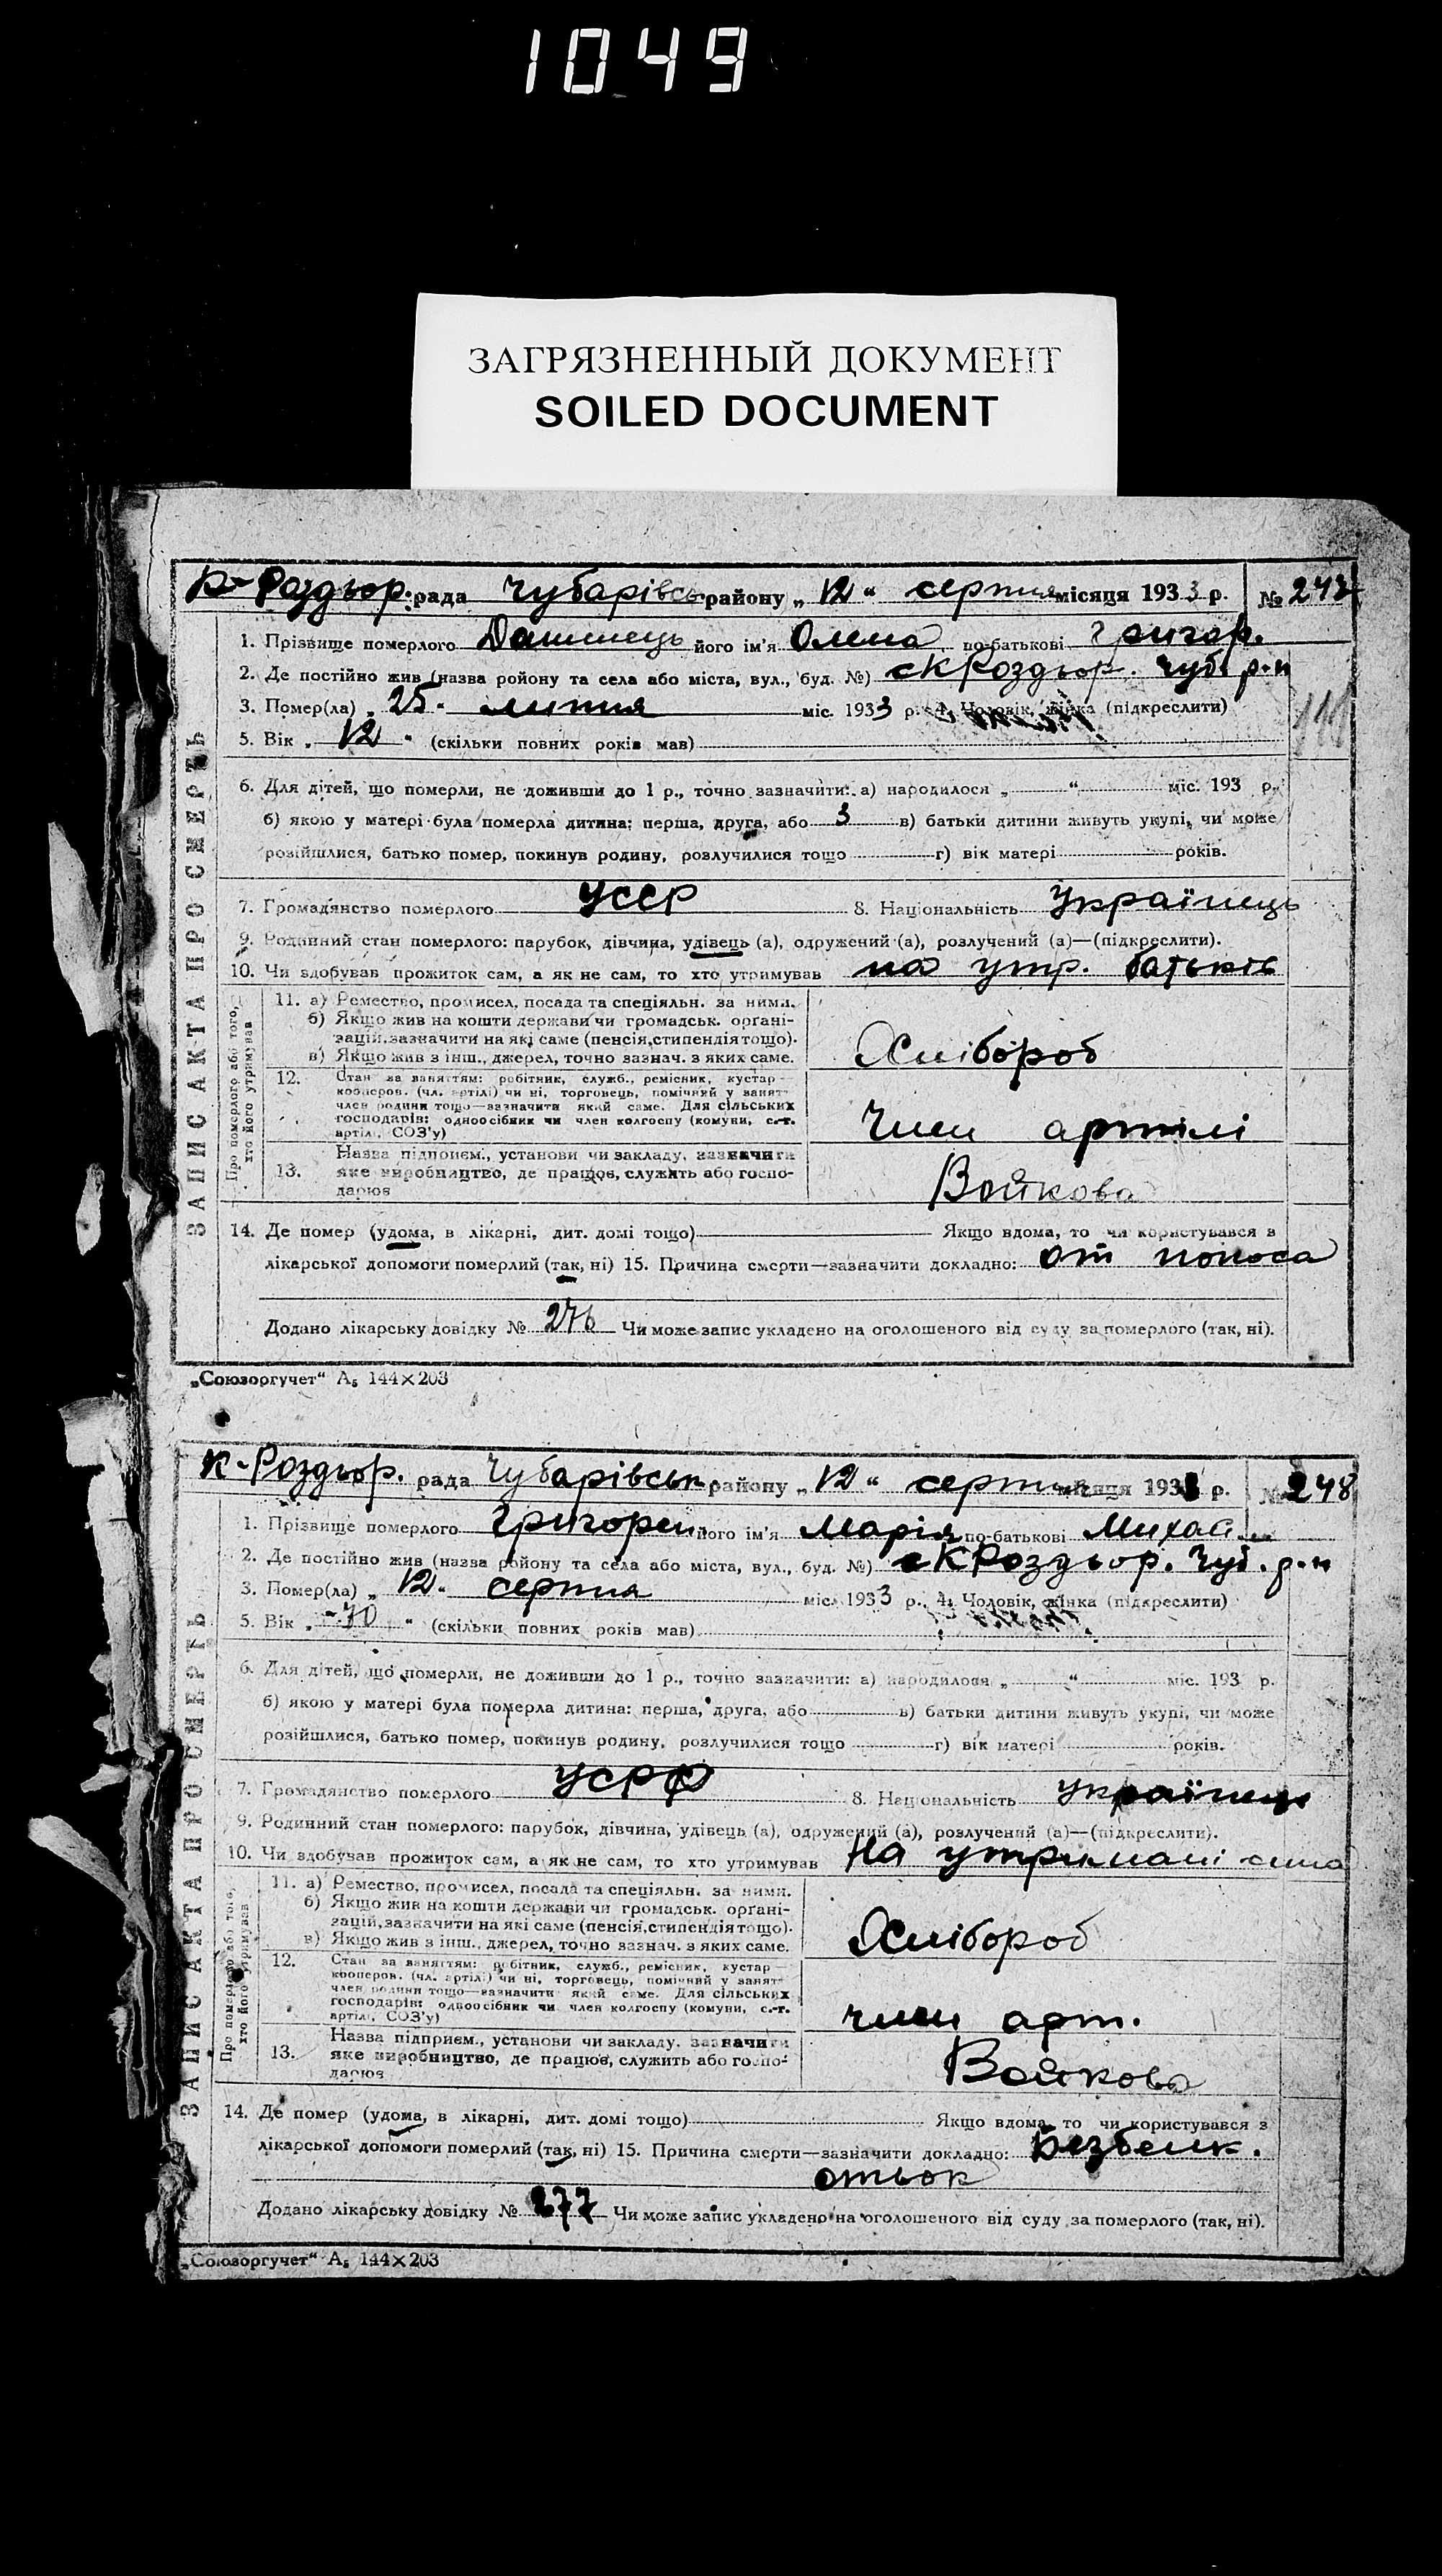 1049
ЗАГРЯЗНЕННЫЙ ДОКУМЕНТ
SOILED DOCUMENT
К-Роздьор. рада Чубарівськ району „12“ серпня місяця 1933 р. № 247
ЗАПИС АКТА ПРО СМЕРТЬ
1. Прізвище померлого його ім'я Олена по-батькові Григор.
2. Де постійно жив (назва ройону та села або міста, вул., буд. №) с К Роздьор. Чуб. р-н
3. Помер(ла) „25“ липня міс. 1933 р. 4. Чоловік, жінка (підкреслити)
5. Вік „12“ (скільки повних років мав)
6. Для дітей, що померли, не доживши до 1 р., точно зазначити: а) народилося „ “ міс. 193 р.
б) якою у матері була померла дитина: перша, друга, або 3 в) батьки дитини живуть укупі, чи може
розійшлися, батько помер, покинув родину, розлучилися тощо г) вік матері років.
7. Громадянство померлого УССР 8. Національність Українець
9. Родинний стан померлого: парубок, дівчина, удівець (а), одружений (а), розлучений (а)—(підкреслити).
10. Чи здобував прожиток сам, а як не сам, то хто утримував на утр. батьків
Про померлого або того, хто його утримував
11. а) Ремество, промисел, посада та спеціяльн. за ними.
б) Якщо жив на кошти держави чи громадськ. орґані-
зацій, зазначити на які саме (пенсія, стипендія тощо).
в) Якщо жив з інш., джерел, точно зазнач. з яких саме.
Хлібороб
12. Стан за заняттям: робітник, служб., ремісник, кустар—
кооперов. (чл. артілі) чи ні, торговець, помічний у занят-
член родини тощо—зазначити який саме. Для сільських
господарів: одноосібник чи член колгоспу (комуни, с.-г.
артілі, СОЗ'у)
Член артілі
13. Назва підприєм., установи чи закладу, зазначити
яке виробництво, де працюв, служить або госпо-
дарюв
Войкова
14. Де помер (удома, в лікарні, дит. домі тощо) Якщо вдома, то чи користувався з
лікарської допомоги померлий (так, ні) 15. Причина смерти—зазначити докладно: от поноса
Додано лікарську довідку № 276 Чи може запис укладено на оголошеного від суду за померлого (так, ні).
„Союзоргучет“ А₅ 144×203
К-Роздьор. рада Чубарівськ. району „12“ серпня місяця 1933 р. № 248
ЗАПИС АКТА ПРО СМЕРТЬ
1. Прізвище померлого Григорен. його ім'я Марія по-батькові Михайл.
2. Де постійно жив (назва ройону та села або міста, вул., буд. №) с К Роздьор. Чуб. р-н
3. Помер(ла) „12“ серпня міс. 1933 р. 4. Чоловік, жінка (підкреслити)
5. Вік „70“ (скільки повних років мав)
6. Для дітей, що померли, не доживши до 1 р., точно зазначити: а) народилося „ “ міс. 193 р.
б) якою у матері була померла дитина: перша, друга, або в) батьки дитини живуть укупі, чи може
розійшлися, батько помер, покинув родину, розлучилися тощо г) вік матері років.
7. Громадянство померлого 8. Національність Українець
9. Родинний стан померлого: парубок, дівчина, удівець (а), одружений (а), розлучений (а)—(підкреслити).
10. Чи здобував прожиток сам, а як не сам, то хто утримував На утримані сина
Про померлого або того, хто його утримував
11. а) Ремество, промисел, посада та спеціяльн. за ними.
б) Якщо жив на кошти держави чи громадськ. орґані-
зацій, зазначити на які саме (пенсія, стипендія тощо).
в) Якщо жив з інш., джерел, точно зазнач. з яких саме.
Хлібороб
12. Стан за заняттям: робітник, служб., ремісник, кустар—
кооперов. (чл. артілі) чи ні, торговець, помічний у занят-
член родини тощо—зазначити який саме. Для сільських
господарів: одноосібник чи член колгоспу (комуни, с.-г.
артілі, СОЗ'у)
член арт.
13. Назва підприєм., установи чи закладу, зазначити
яке виробництво, де працюв, служить або госпо-
дарюв
Войкова
14. Де помер (удома, в лікарні, дит. домі тощо) Якщо вдома, то чи користувався з
лікарської допомоги померлий (так, ні) 15. Причина смерти—зазначити докладно: Безбелк.
отьок
Додано лікарську довідку № 277 Чи може запис укладено на оголошеного від суду за померлого (так, ні).
„Союзоргучет“ А₅ 144×203